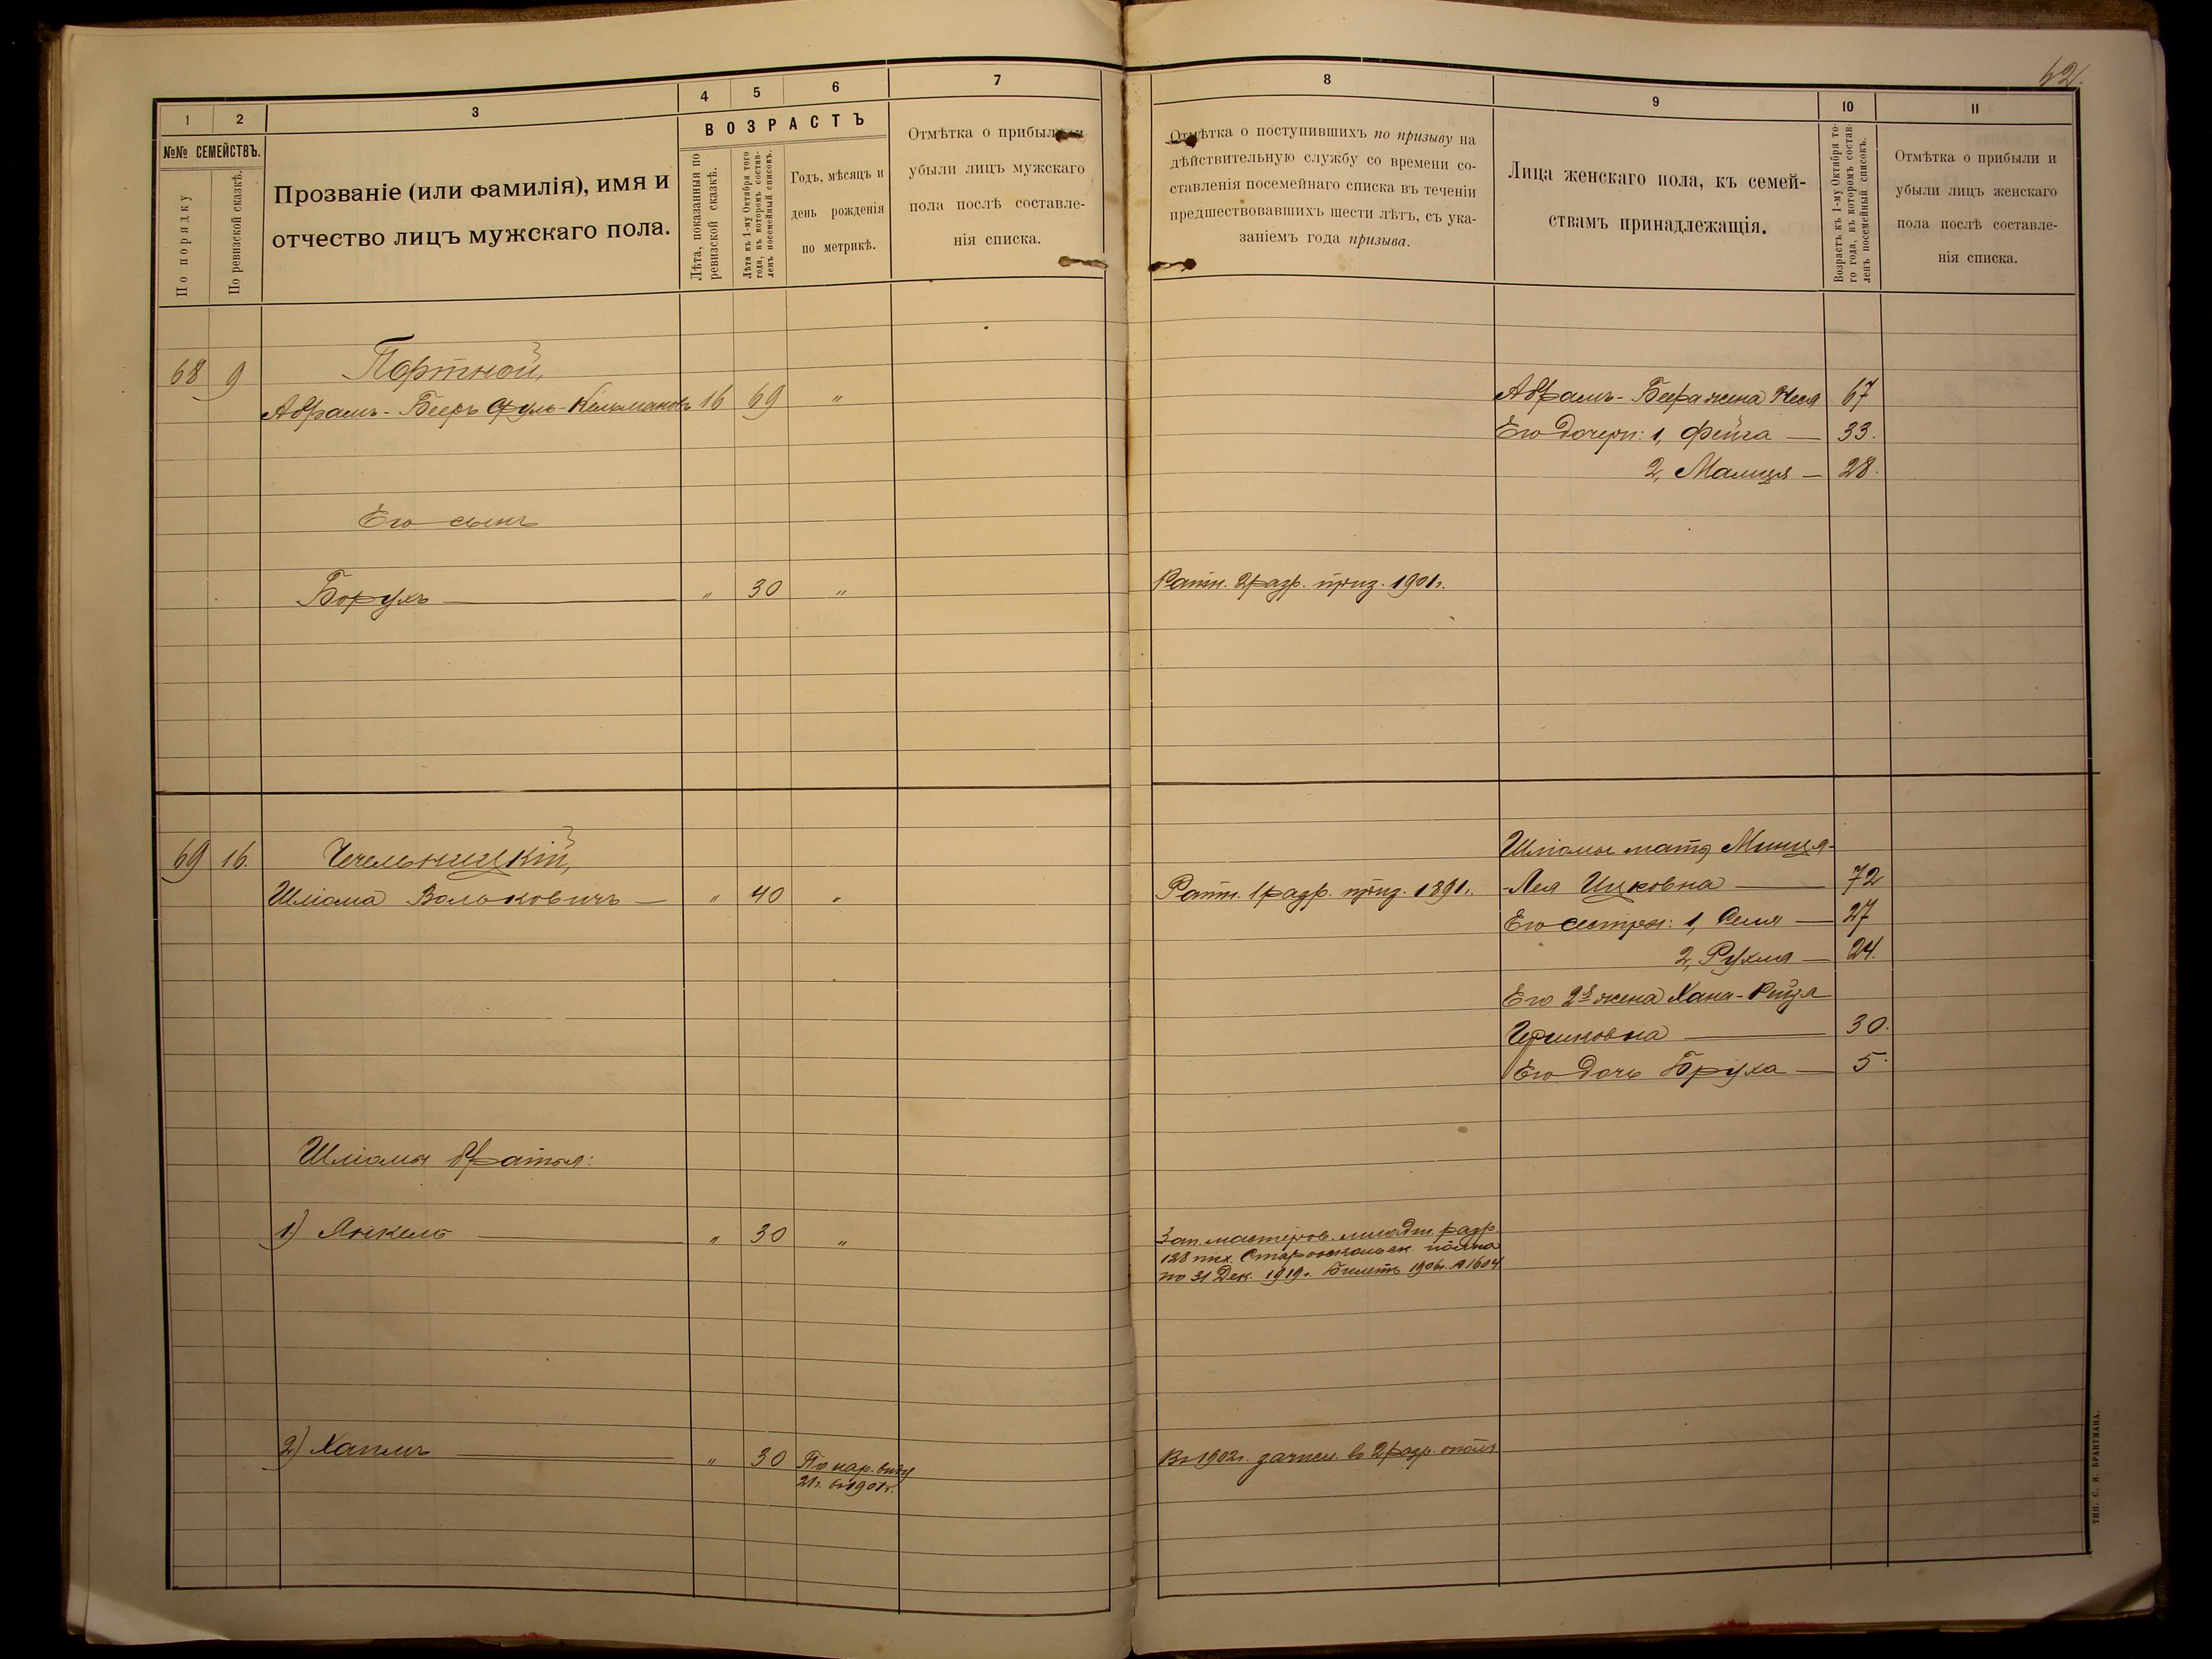 42.
1 2 3 4 5 6 7
№№ СЕМЕЙСТВЪ.
По порядку
По ревизской сказкѣ.
Прозваніе (или фамилія), имя и
отчество лицъ мужскаго пола.
ВОЗРАСТЪ
Лѣта, показанныя по
ревизской сказкѣ.
Лѣта къ 1-му Октября того
года, въ которомъ состав-
ленъ посемейный списокъ.
Годъ, мѣсяцъ и
день рожденія
по метрикѣ.
Отмѣтка о прибыли и
убыли лицъ мужскаго
пола послѣ составле-
нія списка.
68 9 Портной,
Абрамъ-Бееръ Сруль-Кельмановъ 16 69 "
Его сынъ
Борухъ — " 30 "
69 16. Чечельницкій,
Шліома Вольковичъ — " 40 "
Шліомы братья:
1) Янкель — " 30 "
2) Хаимъ — " 30 По нар. виду
21 г. въ 1901 г.
8 9 10 11
Отмѣтка о поступившихъ по призыву на
дѣйствительную службу со времени со-
ставленія посемейнаго списка въ теченіи
предшествовавшихъ шести лѣтъ, съ ука-
заніемъ года призыва.
Лица женскаго пола, къ семей-
ствамъ принадлежащія.
Возрастъ къ 1-му Октября то-
го года, въ которомъ состав-
ленъ посемейный списокъ.
Отмѣтка о прибыли и
убыли лицъ женскаго
пола послѣ составле-
нія списка.
Абрамъ-Беера жена Неся 67
Его дочери: 1, Фейга — 33.
2, Малця — 28.
Ратн. 2 разр. приз. 1901 г.
Шліомы мать Минця-
Ратн. 1 разр. приз. 1891 г. -Лея Ицковна — 72
Его сестры: 1, — 27
2, Рухля — 24.
Его 2я жена Хана-Рейза
Гершковна — 30.
Его дочь Бруха — 5.
Зап. мастеров. младш. разр.
128 пѣх. Старооскольск. полка
по 31 Дек. 1919 г. Билетъ 1906 г. № 1604
Въ 1902 г. зачисл. въ 2 разр. ополч
ТИП. С. Я. БРАНТМАНА.